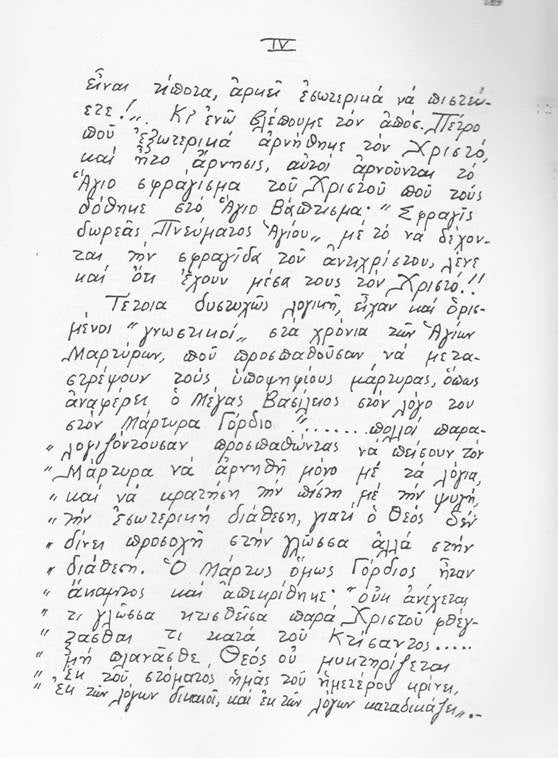 IV
εἶναι τίποτα, ἀρκεῖ ἐσωτερικά νά πιστεύ-
ετε!„. Κι' ἐνῶ βλέπουμε τόν ἀπόσ. Πέτρο
πού ἐξωτερικά ἀρνήθηκε τόν Χριστό,
καί ἦτο ἄρνησις, αὐτοί ἀρνοῦνται τό
Ἅγιο σφράγισμα τοῦ Χριστοῦ πού τούς
δόθηκε στό Ἅγιο Βάπτισμα· "Σφραγίς
δωρεᾶς Πνεύματος Ἁγίου„ μέ τό νά δέχον-
ται τήν σφραγίδα τοῦ ἀντιχρίστου, λένε
καί ὅτι ἔχουν μέσα τους τόν Χριστό!!
Τέτοια δυστυχῶς λογική, εἶχαν καί ὁρι-
μένοι "γνωστικοί„ στά χρόνια τῶν Ἁγίων
Μαρτύρων, πού προσπαθοῦσαν νά μετα-
στρέψουν τούς ὑποψηφίους μάρτυρας, ὅπως
ἀναφέρει ὁ Μέγας Βασίλειος στόν λόγο του
στόν Μάρτυρα Γόρδιο "........πολλοί παρα-
„ λογιζόντουσαν προσπαθώντας νά πείσουν τόν
„ Μάρτυρα νά ἀρνηθῆ μόνο μέ τά λόγια,
„ καί νά κρατήση τήν πίστη μέ τήν ψυχή,
„ τήν ἐσωτερική διάθεση, γιατί ὁ Θεός δέν
„ δίνει προσοχή στήν γλῶσσα ἀλλά στήν
„ διάθεση. Ὁ Μάρτυς ὅμως Γόρδιος ἦταν
„ ἄκαμπτος καί ἀπεκρίθηκε· "οὐκ ἀνέχεται
„ τι γλῶσσα κτισθεῖσα παρά Χριστοῦ φθέγ-
„ ξασθαι τι κατά τοῦ Κτίσαντος.....
„ Μή πλανᾶσθε, Θεός οὐ μυκτηρίζεται
„ ἐκ τοῦ στόματος ἡμᾶς τοῦ ἡμετέρου κρίνει,
„ ἐκ τῶν λόγων δικαιοῖ, καί ἐκ τῶν λόγων καταδικάζει„.-